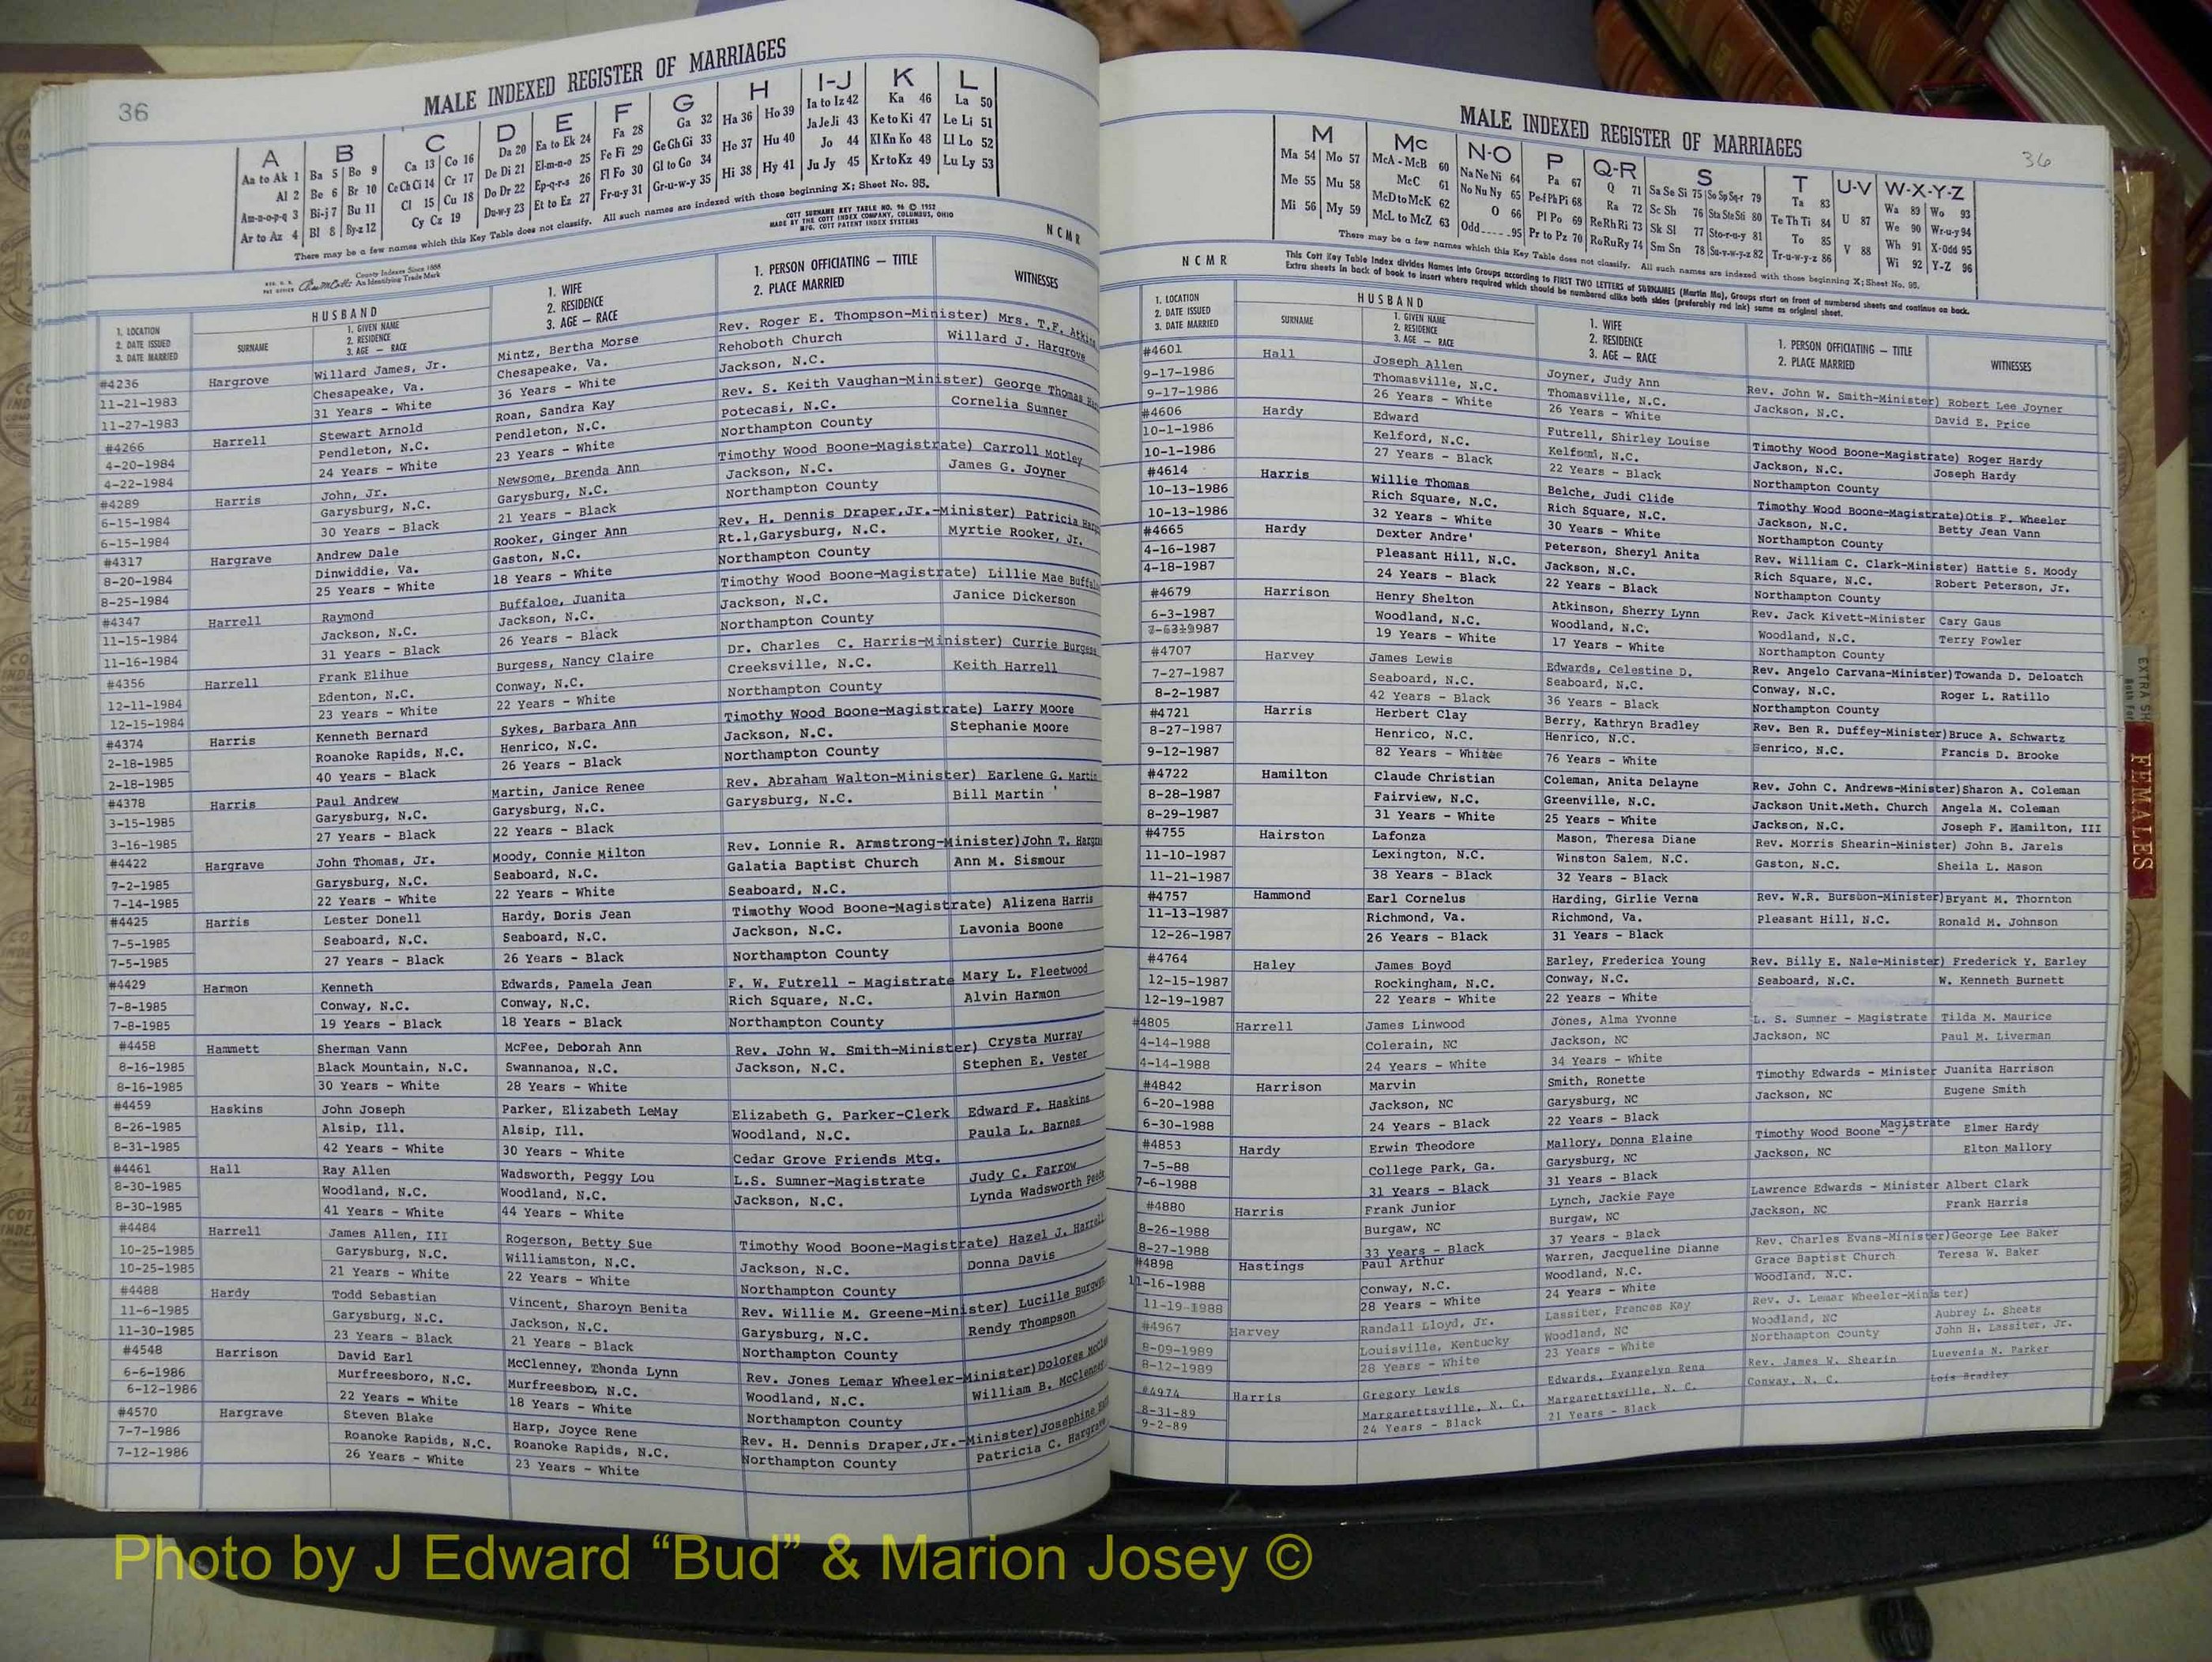 36
MALE INDEXED REGISTER OF MARRIAGES
A B C D E F G H I-J K L
Aa to Ak 1 Ba 5 Bo 9 Ca 13 Co 16 Da 20 Ea to Ek 24 Fa 28 Ga 32 Ha 36 Ho 39 Ia to Iz 42 Ka 46 La 50
Al 2 Be 6 Br 10 Ce Ch Ci 14 Cr 17 De Di 21 El-m-n-o 25 Fe Fi 29 Ge Gh Gi 33 He 37 Hu 40 Ja Je Ji 43 Ke to Ki 47 Le Li 51
Am-n-o-p-q 3 Bi-j 7 Bu 11 Cl 15 Cu 18 Do Dr 22 Ep-q-r-s 26 Fl Fo 30 Gl to Go 34 Hi 38 Hy 41 Jo 44 Kl Kn Ko 48 Ll Lo 52
Ar to Az 4 Bl 8 By-z 12 Cy Cz 19 Du-w-y 23 Et to Ez 27 Fr-u-y 31 Gr-u-w-y 35 Ju Jy 45 Kr to Kz 49 Lu Ly 53
There may be a few names which this Key Table does not classify. All such names are indexed with those beginning X; Sheet No. 95.
COTT SURNAME KEY TABLE NO. 96 © 1952
MADE BY THE COTT INDEX COMPANY, COLUMBUS, OHIO
MFG. COTT PATENT INDEX SYSTEMS
County Indexes Since 1888
An Identifying Trade Mark
N C M R
1. LOCATION
2. DATE ISSUED
3. DATE MARRIED
HUSBAND
SURNAME
1. GIVEN NAME
2. RESIDENCE
3. AGE — RACE
1. WIFE
2. RESIDENCE
3. AGE — RACE
1. PERSON OFFICIATING — TITLE
2. PLACE MARRIED
WITNESSES
#4236 Hargrove Willard James, Jr. Mintz, Bertha Morse Rev. Roger E. Thompson-Minister) Mrs. T.F.
11-21-1983 Chesapeake, Va. Chesapeake, Va. Rehoboth Church Willard J. Hargrove
11-27-1983 31 Years - White 36 Years - White Jackson, N.C.
#4266 Harrell Stewart Arnold Roan, Sandra Kay Rev. S. Keith Vaughan-Minister) George Thomas
4-20-1984 Pendleton, N.C. Pendleton, N.C. Potecasi, N.C. Cornelia Sumner
4-22-1984 24 Years - White 23 Years - White Northampton County
#4289 Harris John, Jr. Newsome, Brenda Ann Timothy Wood Boone-Magistrate) Carroll Motley
6-15-1984 Garysburg, N.C. Garysburg, N.C. Jackson, N.C. James G. Joyner
6-15-1984 30 Years - Black 21 Years - Black Northampton County
#4317 Hargrave Andrew Dale Rooker, Ginger Ann Rev. H. Dennis Draper,Jr.-Minister) Patricia
8-20-1984 Dinwiddie, Va. Gaston, N.C. Rt.1,Garysburg, N.C. Myrtie Rooker, Jr.
8-25-1984 25 Years - White 18 Years - White Northampton County
#4347 Harrell Raymond Buffaloe, Juanita Timothy Wood Boone-Magistrate) Lillie Mae
11-15-1984 Jackson, N.C. Jackson, N.C. Jackson, N.C. Janice Dickerson
11-16-1984 31 Years - Black 26 Years - Black Northampton County
#4356 Harrell Frank Elihue Burgess, Nancy Claire Dr. Charles C. Harris-Minister) Currie Burgess
12-11-1984 Edenton, N.C. Conway, N.C. Creeksville, N.C. Keith Harrell
12-15-1984 23 Years - White 22 Years - White Northampton County
#4374 Harris Kenneth Bernard Sykes, Barbara Ann Timothy Wood Boone-Magistrate) Larry Moore
2-18-1985 Roanoke Rapids, N.C. Henrico, N.C. Jackson, N.C. Stephanie Moore
2-18-1985 40 Years - Black 26 Years - Black Northampton County
#4378 Harris Paul Andrew Martin, Janice Renee Rev. Abraham Walton-Minister) Earlene G. Martin
3-15-1985 Garysburg, N.C. Garysburg, N.C. Garysburg, N.C. Bill Martin
3-16-1985 27 Years - Black 22 Years - Black
#4422 Hargrave John Thomas, Jr. Moody, Connie Milton Rev. Lonnie R. Armstrong-Minister)John T.
7-2-1985 Garysburg, N.C. Seaboard, N.C. Galatia Baptist Church Ann M. Sismour
7-14-1985 22 Years - White 22 Years - White Seaboard, N.C.
#4425 Harris Lester Donell Hardy, Doris Jean Timothy Wood Boone-Magistrate) Alizena Harris
7-5-1985 Seaboard, N.C. Seaboard, N.C. Jackson, N.C. Lavonia Boone
7-5-1985 27 Years - Black 26 Years - Black Northampton County
#4429 Harmon Kenneth Edwards, Pamela Jean F. W. Futrell - Magistrate Mary L. Fleetwood
7-8-1985 Conway, N.C. Conway, N.C. Rich Square, N.C. Alvin Harmon
7-8-1985 19 Years - Black 18 Years - Black Northampton County
#4458 Hammett Sherman Vann McFee, Deborah Ann Rev. John W. Smith-Minister) Crysta Murray
8-16-1985 Black Mountain, N.C. Swannanoa, N.C. Jackson, N.C. Stephen E. Vester
8-16-1985 30 Years - White 28 Years - White
#4459 Haskins John Joseph Parker, Elizabeth LeMay Elizabeth G. Parker-Clerk Edward F. Haskins
8-26-1985 Alsip, Ill. Alsip, Ill. Woodland, N.C. Paula L. Barnes
8-31-1985 42 Years - White 30 Years - White Cedar Grove Friends Mtg.
#4461 Hall Ray Allen Wadsworth, Peggy Lou L.S. Sumner-Magistrate Judy C. Farrow
8-30-1985 Woodland, N.C. Woodland, N.C. Jackson, N.C. Lynda Wadsworth
8-30-1985 41 Years - White 44 Years - White
#4484 Harrell James Allen, III Rogerson, Betty Sue Timothy Wood Boone-Magistrate) Hazel J. Harrell
10-25-1985 Garysburg, N.C. Williamston, N.C. Jackson, N.C. Donna Davis
10-25-1985 21 Years - White 22 Years - White Northampton County
#4488 Hardy Todd Sebastian Vincent, Sharoyn Benita Rev. Willie M. Greene-Minister) Lucille
11-6-1985 Garysburg, N.C. Jackson, N.C. Garysburg, N.C. Rendy Thompson
11-30-1985 23 Years - Black 21 Years - Black Northampton County
#4548 Harrison David Earl McClenney, Thonda Lynn Rev. Jones Lemar Wheeler-Minister)Dolores
6-6-1986 Murfreesboro, N.C. Murfreesboro, N.C. Woodland, N.C. William B. McClenney
6-12-1986 22 Years - White 18 Years - White Northampton County
#4570 Hargrave Steven Blake Harp, Joyce Rene Rev. H. Dennis Draper,Jr.-Minister)Josephine
7-7-1986 Roanoke Rapids, N.C. Roanoke Rapids, N.C. Northampton County Patricia C. Hargrave
7-12-1986 26 Years - White 23 Years - White
36
MALE INDEXED REGISTER OF MARRIAGES
M Mc N-O P Q-R S T U-V W-X-Y-Z
Ma 54 Mo 57 McA - McB 60 Na Ne Ni 64 Pa 67 Q 71 Sa Se Si 75 So Sp Sq-r 79 Ta 83 U 87 Wa 89 Wo 93
Me 55 Mu 58 McC 61 No Nu Ny 65 Pe-f Ph Pi 68 Ra 72 Sc Sh 76 Sta Ste Sti 80 Te Th Ti 84 V 88 We 90 Wr-u-y 94
Mi 56 My 59 McD to McK 62 O 66 Pl Po 69 Re Rh Ri 73 Sk Sl 77 Sto-r-u-y 81 To 85 Wh 91 X-Odd 95
McL to McZ 63 Odd 95 Pr to Pz 70 Ro Ru Ry 74 Sm Sn 78 Su-v-w-y-z 82 Tr-u-w-y-z 86 Wi 92 Y-Z 96
There may be a few names which this Key Table does not classify. All such names are indexed with those beginning X; Sheet No. 95.
N C M R
This Cott Key Table Index divides Names into Groups according to FIRST TWO LETTERS of SURNAMES (Martin Ma), Groups start on front of numbered sheets and continue on back.
Extra sheets in back of book to insert where required which should be numbered alike both sides (preferably red ink) same as original sheet.
1. LOCATION
2. DATE ISSUED
3. DATE MARRIED
HUSBAND
SURNAME
1. GIVEN NAME
2. RESIDENCE
3. AGE — RACE
1. WIFE
2. RESIDENCE
3. AGE — RACE
1. PERSON OFFICIATING — TITLE
2. PLACE MARRIED
WITNESSES
#4601 Hall Joseph Allen Joyner, Judy Ann Rev. John W. Smith-Minister) Robert Lee Joyner
9-17-1986 Thomasville, N.C. Thomasville, N.C. Jackson, N.C. David E. Price
9-17-1986 26 Years - White 26 Years - White
#4606 Hardy Edward Futrell, Shirley Louise Timothy Wood Boone-Magistrate) Roger Hardy
10-1-1986 Kelford, N.C. Kelford, N.C. Jackson, N.C. Joseph Hardy
10-1-1986 27 Years - Black 22 Years - Black Northampton County
#4614 Harris Willie Thomas Belche, Judi Clide Timothy Wood Boone-Magistrate)Otis F. Wheeler
10-13-1986 Rich Square, N.C. Rich Square, N.C. Jackson, N.C. Betty Jean Vann
10-13-1986 32 Years - White 30 Years - White Northampton County
#4665 Hardy Dexter Andre' Peterson, Sheryl Anita Rev. William C. Clark-Minister) Hattie S. Moody
4-16-1987 Pleasant Hill, N.C. Jackson, N.C. Rich Square, N.C. Robert Peterson, Jr.
4-18-1987 24 Years - Black 22 Years - Black Northampton County
#4679 Harrison Henry Shelton Atkinson, Sherry Lynn Rev. Jack Kivett-Minister Cary Gaus
6-3-1987 Woodland, N.C. Woodland, N.C. Woodland, N.C. Terry Fowler
19 Years - White 17 Years - White Northampton County
#4707 Harvey James Lewis Edwards, Celestine D. Rev. Angelo Carvana-Minister)Towanda D. Deloatch
7-27-1987 Seaboard, N.C. Seaboard, N.C. Conway, N.C. Roger L. Ratillo
8-2-1987 42 Years - Black 36 Years - Black Northampton County
#4721 Harris Herbert Clay Berry, Kathryn Bradley Rev. Ben R. Duffey-Minister)Bruce A. Schwartz
8-27-1987 Henrico, N.C. Henrico, N.C. Henrico, N.C. Francis D. Brooke
9-12-1987 82 Years - White 76 Years - White
#4722 Hamilton Claude Christian Coleman, Anita Delayne Rev. John C. Andrews-Minister)Sharon A. Coleman
8-28-1987 Fairview, N.C. Greenville, N.C. Jackson Unit.Meth. Church Angela M. Coleman
8-29-1987 31 Years - White 25 Years - White Jackson, N.C. Joseph F. Hamilton, III
#4755 Hairston Lafonza Mason, Theresa Diane Rev. Morris Shearin-Minister) John B. Jarels
11-10-1987 Lexington, N.C. Winston Salem, N.C. Gaston, N.C. Sheila L. Mason
11-21-1987 38 Years - Black 32 Years - Black
#4757 Hammond Earl Cornelus Harding, Girlie Verna Rev. W.R. Burston-Minister)Bryant M. Thornton
11-13-1987 Richmond, Va. Richmond, Va. Pleasant Hill, N.C. Ronald M. Johnson
12-26-1987 26 Years - Black 31 Years - Black
#4764 Haley James Boyd Earley, Frederica Young Rev. Billy E. Nale-Minister) Frederick Y. Earley
12-15-1987 Rockingham, N.C. Conway, N.C. Seaboard, N.C. W. Kenneth Burnett
12-19-1987 22 Years - White 22 Years - White
#4805 Harrell James Linwood Jones, Alma Yvonne L. S. Sumner - Magistrate Tilda M. Maurice
4-14-1988 Colerain, NC Jackson, NC Jackson, NC Paul M. Liverman
4-14-1988 24 Years - White 34 Years - White
#4842 Harrison Marvin Smith, Ronette Timothy Edwards - Minister Juanita Harrison
6-20-1988 Jackson, NC Garysburg, NC Jackson, NC Eugene Smith
6-30-1988 24 Years - Black 22 Years - Black
#4853 Hardy Erwin Theodore Mallory, Donna Elaine Timothy Wood Boone - Magistrate Elmer Hardy
7-5-88 College Park, Ga. Garysburg, NC Jackson, NC Elton Mallory
7-6-1988 31 Years - Black 31 Years - Black
#4880 Harris Frank Junior Lynch, Jackie Faye Lawrence Edwards - Minister Albert Clark
8-26-1988 Burgaw, NC Burgaw, NC Jackson, NC Frank Harris
8-27-1988 33 Years - Black 37 Years - Black
#4898 Hastings Paul Arthur Warren, Jacqueline Dianne Rev. Charles Evans-Minister)George Lee Baker
11-16-1988 Conway, N.C. Woodland, N.C. Grace Baptist Church Teresa W. Baker
11-19-1988 28 Years - White 24 Years - White Woodland, N.C.
#4967 Harvey Randall Lloyd, Jr. Lassiter, Frances Kay Rev. J. Lemar Wheeler-Minister)
8-09-1989 Louisville, Kentucky Woodland, NC Woodland, NC Aubrey L. Sheats
8-12-1989 28 Years - White 23 Years - White Northampton County John H. Lassiter, Jr.
#4974 Harris Gregory Lewis Edwards, Evangelyn Rena Rev. James W. Shearin Luevenia N. Parker
8-31-89 Margarettsville, N. C. Margarettsville, N. C. Conway, N. C. Lois Bradley
9-2-89 24 Years - Black 21 Years - Black
FEMALES
Photo by J Edward “Bud” & Marion Josey ©